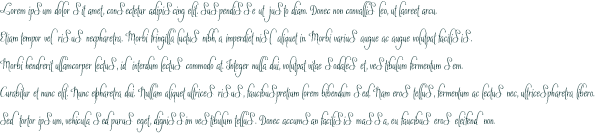 Lorem ipsum dolor sit amet, consectetur adipiscing elit. Suspendisse ut justo diam. Donec non convallis leo, ut laoreet arcu.
Etiam tempor vel risus nec pharetra. Morbi fringilla luctus nibh, a imperdiet nisl aliquet in. Morbi varius augue ac augue volutpat facilisis.
Morbi hendrerit ullamcorper lectus, id interdum lectus commodo at. Integer nulla dui, volutpat vitae sodales et, vestibulum fermentum sem.
Curabitur et nunc elit. Nunc a pharetra dui. Nullam aliquet ultrices risus, faucibus pretium lorem bibendum sed. Nam eros tellus, fermentum ac lectus nec, ultrices pharetra libero.
Sed tortor ipsum, vehicula sed purus eget, dignissim vestibulum tellus. Donec accumsan facilisis massa, eu faucibus eros eleifend non.